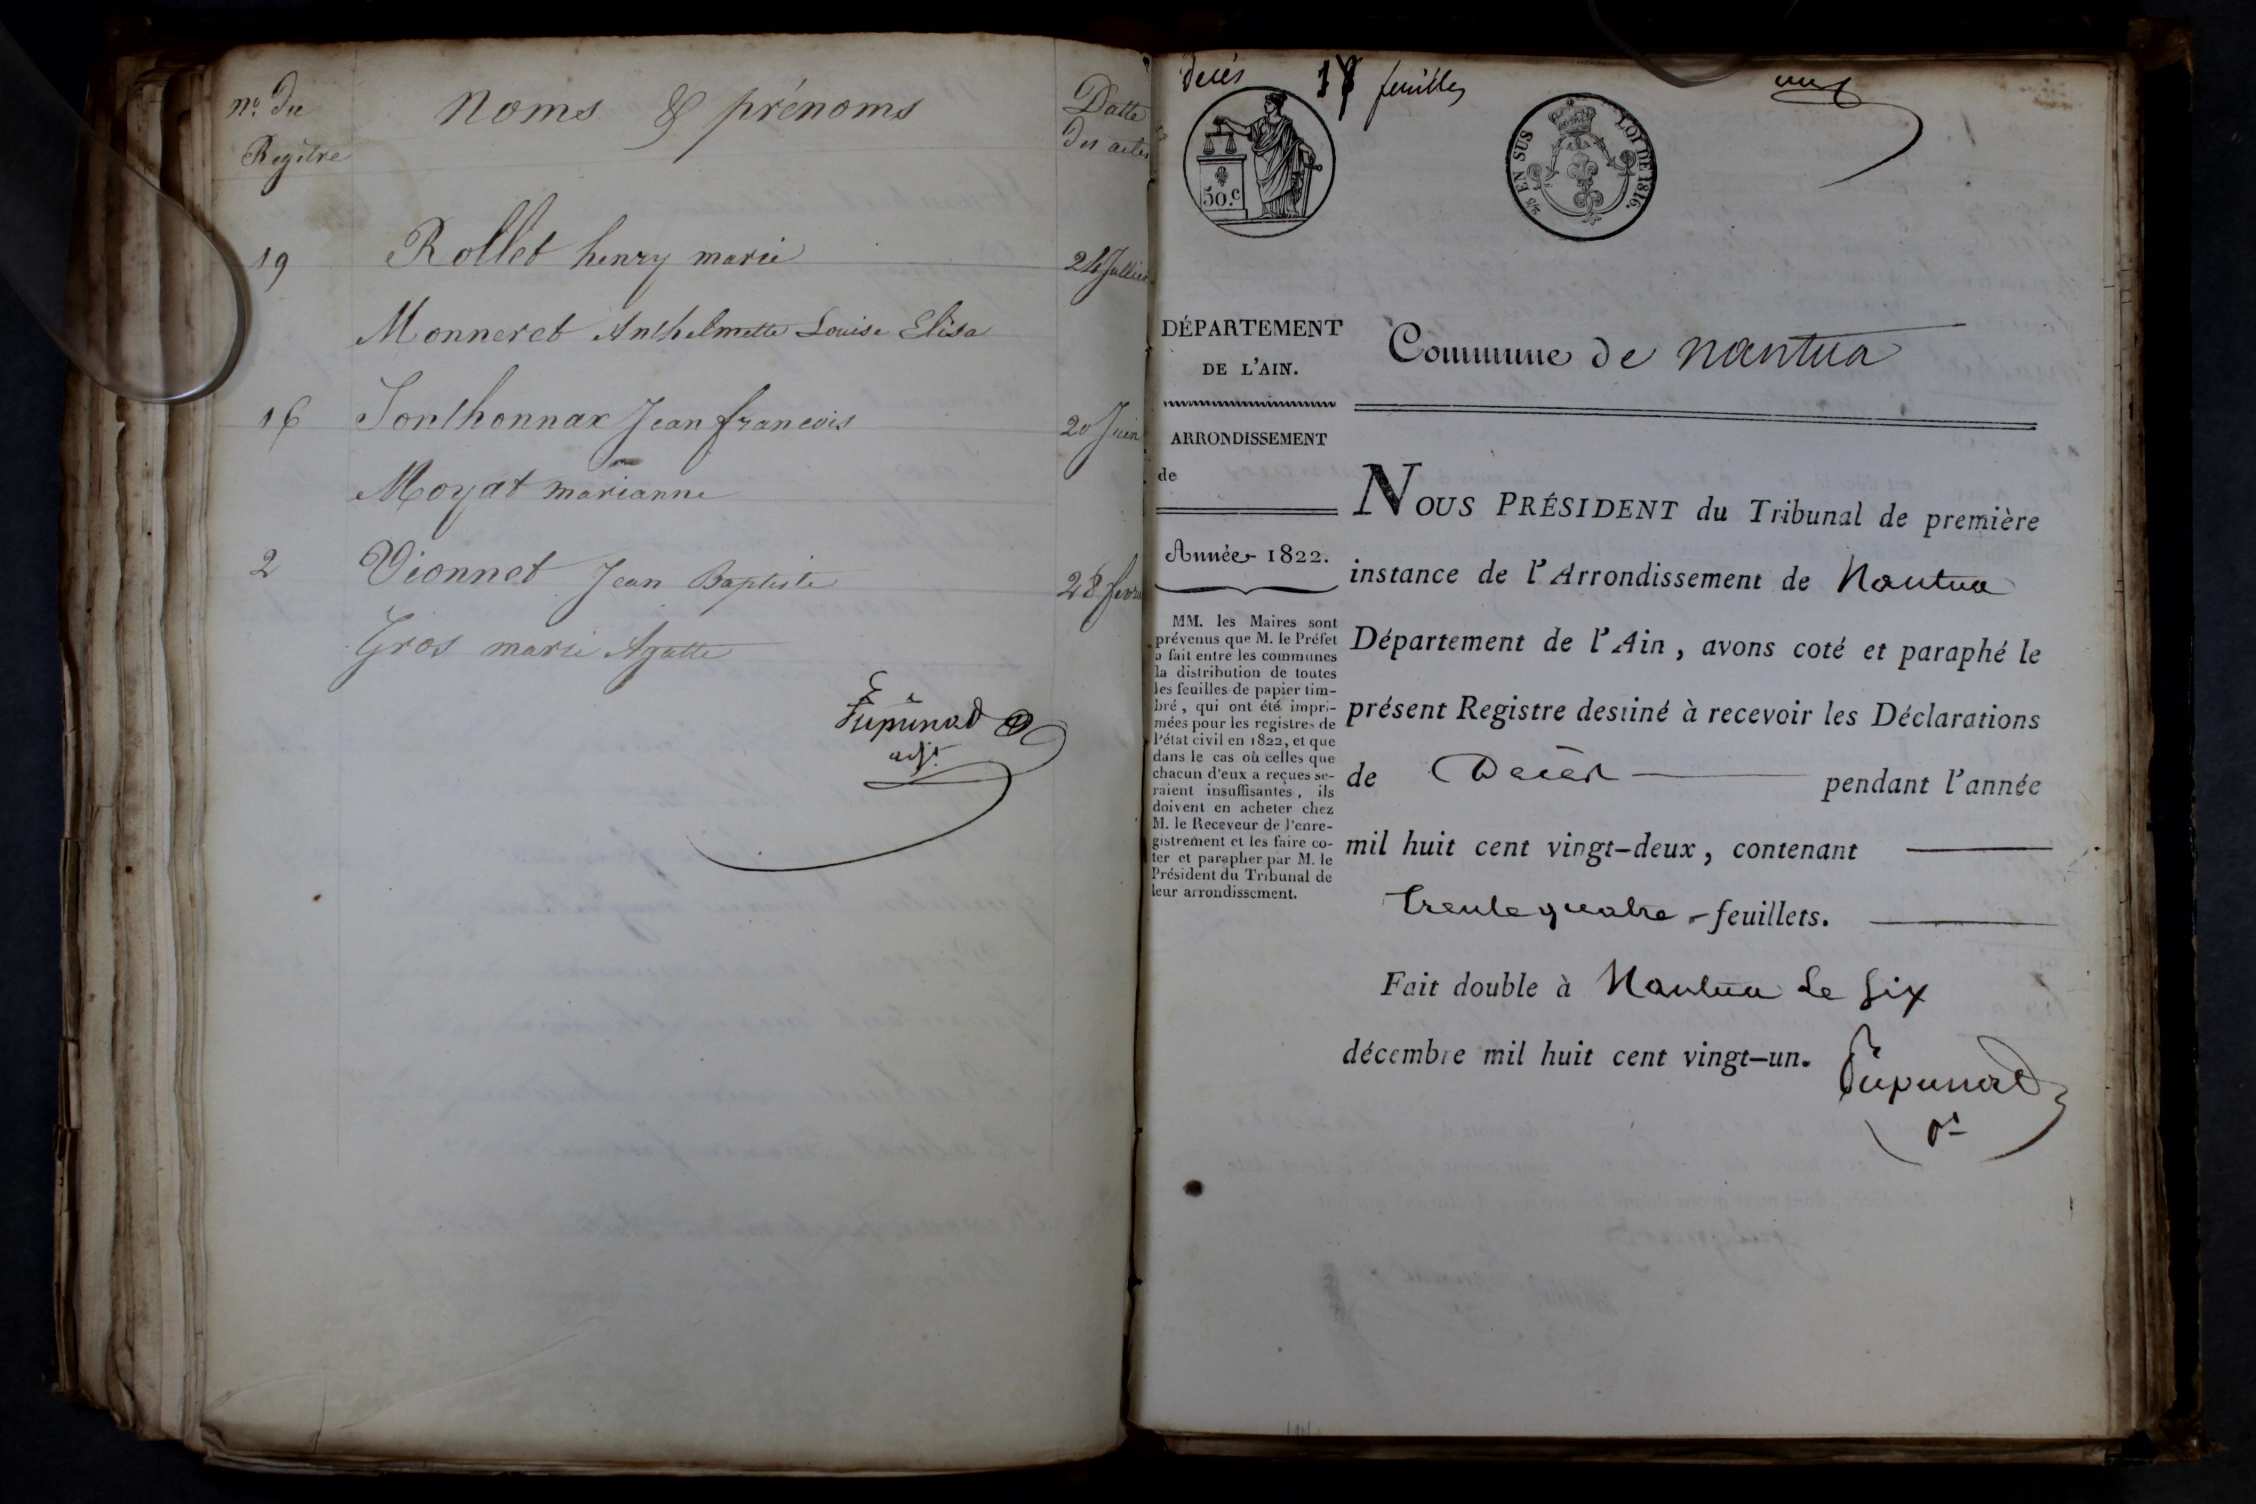 nº. du
Regitre
Noms & prénoms
Datte
des actes
19
Rollet henry marie
24 Juillet
Monneret Anthelmette Louise Elisa
16
Sonthonnax Jean francois
20 Juin
Moyat marianne
2
Vionnet Jean Baptiste
28 fevri
Gros marie Agatte
adjt.
decès
feuilles
50.c
EN SUS
LOI DE 1816.
DÉPARTEMENT
DE L'AIN.
ARRONDISSEMENT
de
Année 1822.
MM. les Maires sont
prévenus que M. le Préfet
a fait entre les communes
la distribution de toutes
les feuilles de papier tim-
bré, qui ont été impri-
mées pour les registres de
l'état civil en 1822, et que
dans le cas où celles que
chacun d'eux a reçues se-
raient insuffisantes, ils
doivent en acheter chez
M. le Receveur de l'enre-
gistrement et les faire co-
ter et parapher par M. le
Président du Tribunal de
leur arrondissement.
Commune de Nantua
NOUS PRÉSIDENT du Tribunal de première
instance de l'Arrondissement de Nantua
Département de l'Ain, avons coté et paraphé le
présent Registre destiné à recevoir les Déclarations
de Décès pendant l'année
mil huit cent vingt-deux, contenant
trente quatre feuillets.
Fait double à Nantua Le six
décembre mil huit cent vingt-un.